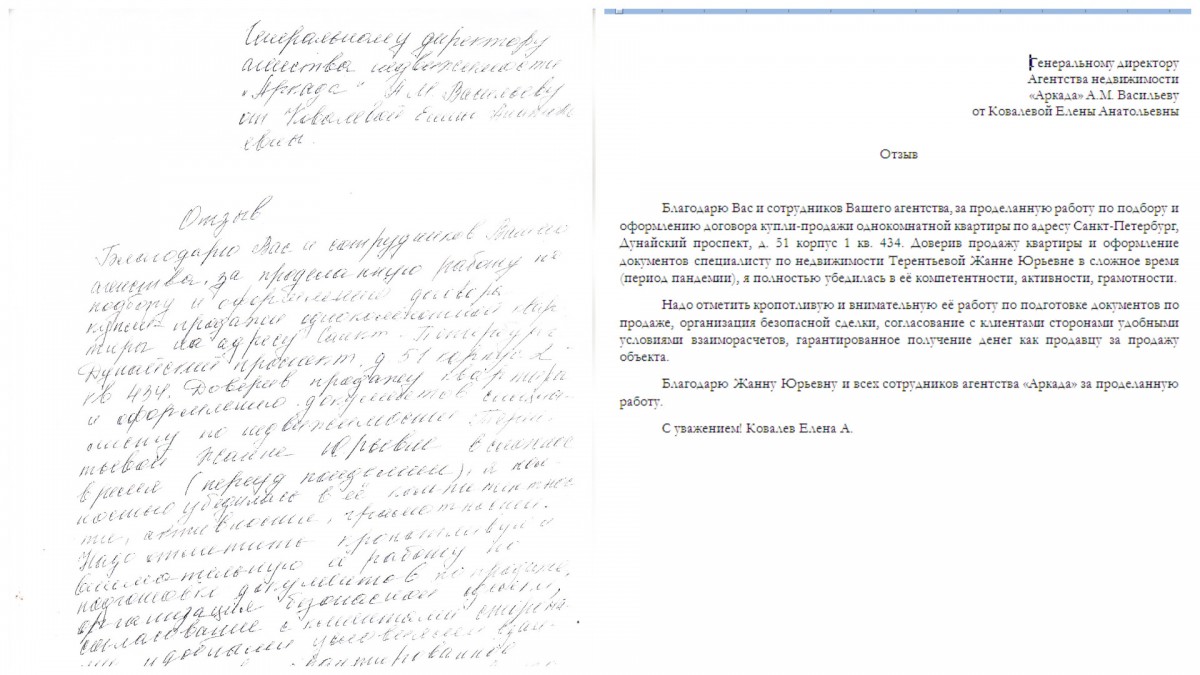 Генеральному директору
агенства недвижимости
"Аркада" А М Васильеву
от Ковалевой Елены Анатоль
евны.
Отзыв
Благодарю Вас и сотрудников Вашего
агенства, за проделанную работу по
подбору и оформлению договора
купли-продажи однокомнатной квар
тиры по адресу Санкт-Петербург
Дунайский проспект д 51 корпус 2
кв 434. Доверив продажу квартиры
и оформлению документов специа-
листу по недвижимости Терен
тьевой Жанне Юрьевне в сложное
время (период пандемии), я пол
ностью убедилась в её компетентнос
ти, активности, грамотности.
Надо отметить кропотливую и
внимательную её работу по
подготовке документов по продаже,
организация безопасной сделки,
согласование с клиентами сторона
ми удобными условиями взаи-
гарантированное
Генеральному директору
Агентства недвижимости
«Аркада» А.М. Васильеву
от Ковалевой Елены Анатольевны
Отзыв
Благодарю Вас и сотрудников Вашего агентства, за проделанную работу по подбору и
оформлению договора купли-продажи однокомнатной квартиры по адресу Санкт-Петербург,
Дунайский проспект, д. 51 корпус 1 кв. 434. Доверив продажу квартиры и оформление
документов специалисту по недвижимости Терентьевой Жанне Юрьевне в сложное время
(период пандемии), я полностью убедилась в её компетентности, активности, грамотности.
Надо отметить кропотливую и внимательную её работу по подготовке документов по
продаже, организация безопасной сделки, согласование с клиентами сторонами удобными
условиями взаиморасчетов, гарантированное получение денег как продавцу за продажу
объекта.
Благодарю Жанну Юрьевну и всех сотрудников агентства «Аркада» за проделанную
работу.
С уважением! Ковалев Елена А.